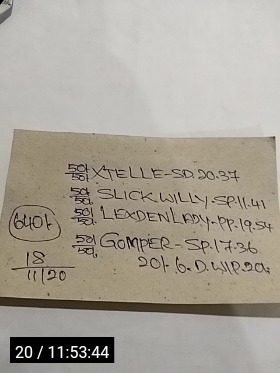 50/- XTELLE-SD.20.37
50/-
50/- SLICK.WILLY-SP.11.41
50/-
50/- LEXDENLADY-PP.19.54
50/-
50/- GOMPER-SP.17.36.
50/-
20/-.6.D.WIP.20/-
640/-
18
11/20
20 / 11:53:44